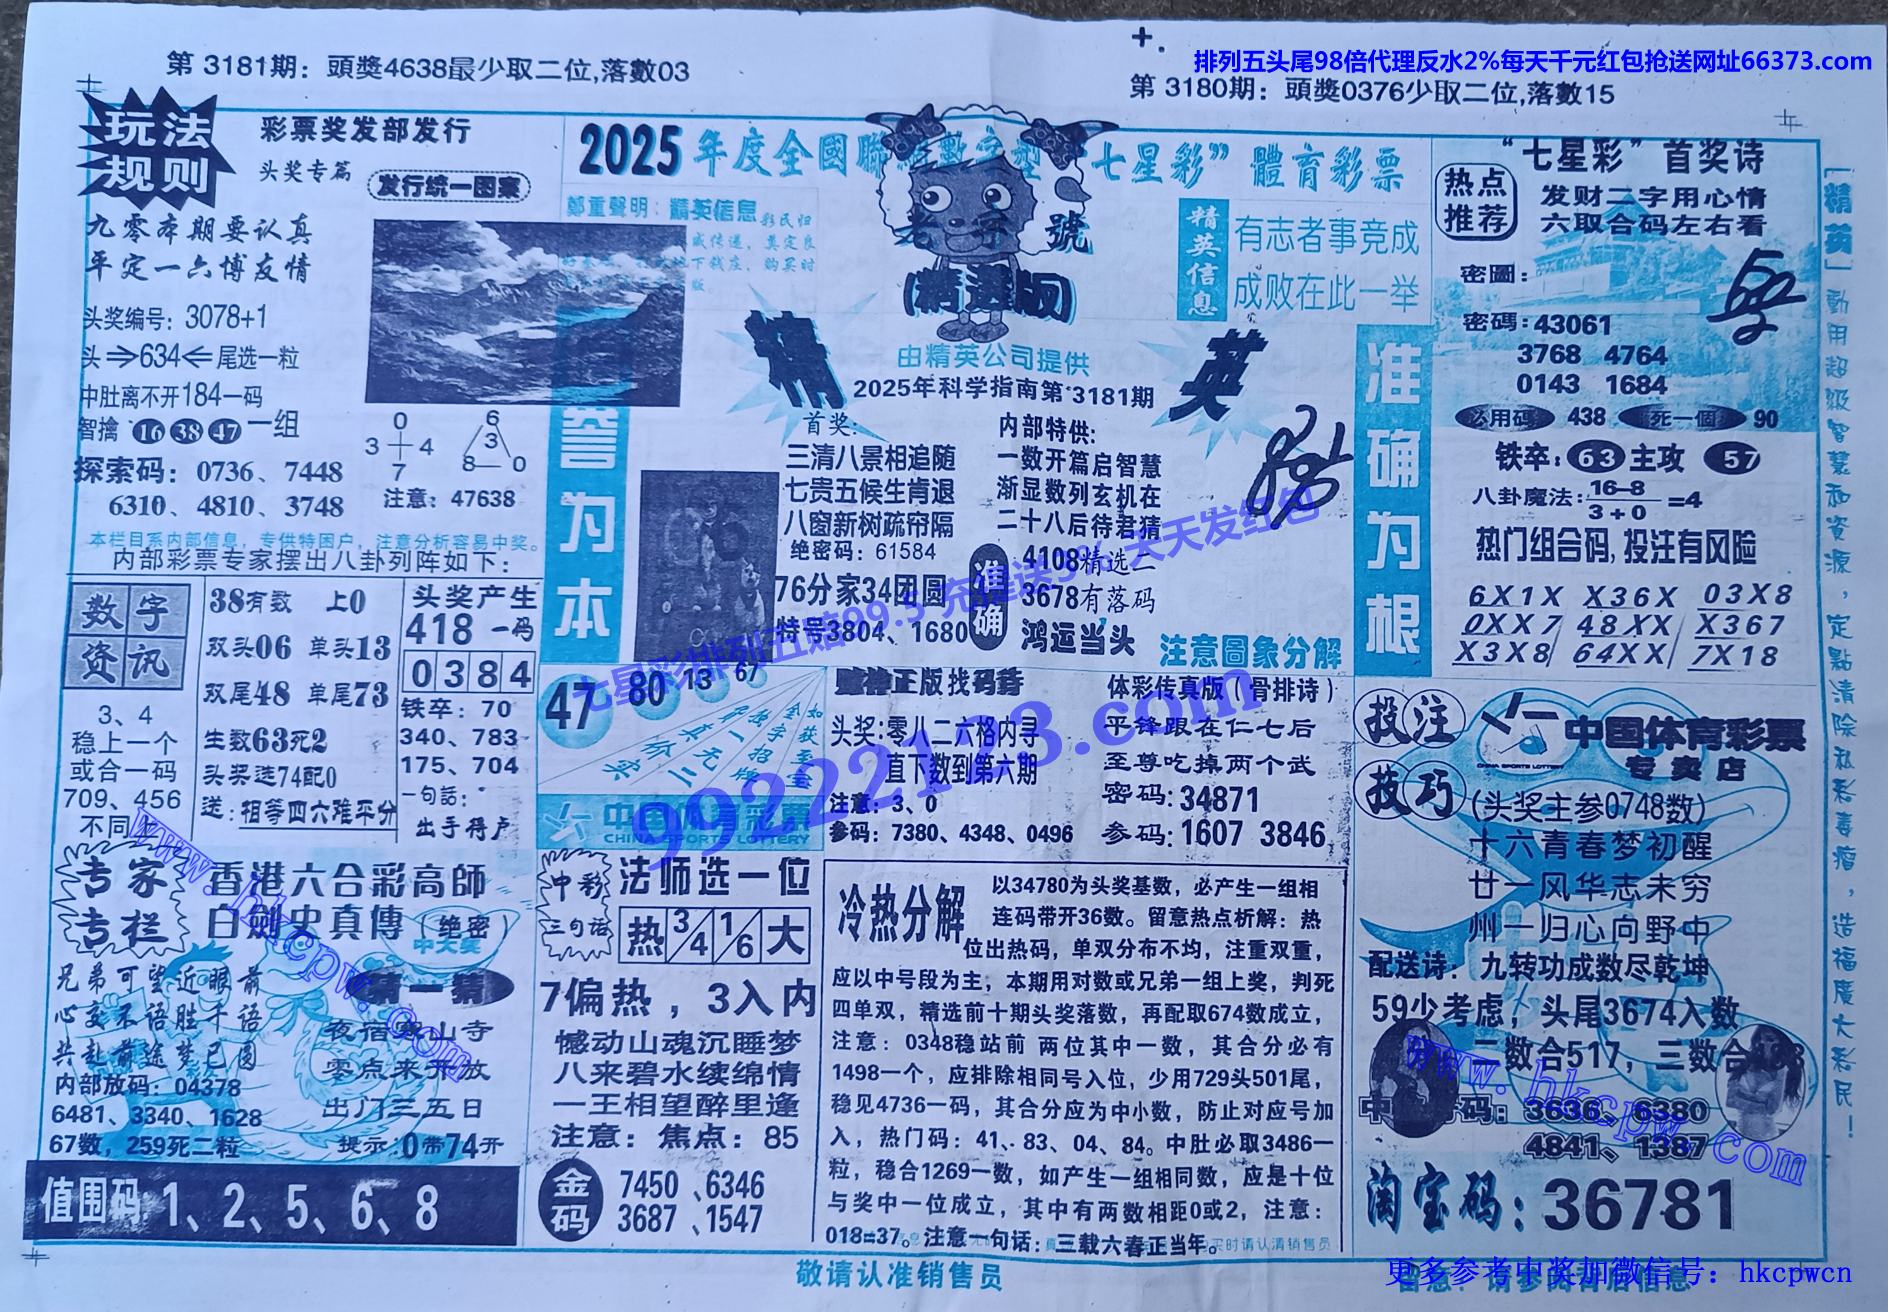 第 3181期：頭獎4638最少取二位,落數03
排列五头尾98倍代理反水2%每天千元红包抢送网址66373.com
第 3180期：頭獎0376少取二位,落數15
玩法
规则
彩票奖发部发行
头奖专篇
发行统一图案
九零本期要认真
平定一六博友情
头奖编号：3078+1
头⇒634⇐尾选一粒
中肚离不开184一码
智擒 16 38 47 一组
探索码：0736、7448
6310、4810、3748
0
3 4
7
6
3
8 0
注意：47638
本栏目系内部信息，专供特困户，注意分析容易中奖。
内部彩票专家摆出八卦列阵如下：
2025年度全國聯
“七星彩”體育彩票
鄭重聲明：精英信息
老字號
(精选版)
精英信息
有志者事竟成
成败在此一举
精 英
由精英公司提供
2025年科学指南第3181期
誉为本
准确为根
首奖：
三清八景相追随
七贵五候生肯退
八窗新树疏帘隔
绝密码：61584
76分家34团圆
特号3804、1680
内部特供:
一数开篇启智慧
渐显数列玄机在
二十八后待君猜
准确
4108精选二
3678有落码
鸿运当头
注意圖象分解
“七星彩”首奖诗
热点
推荐
发财二字用心情
六取合码左右看
密圖：
密碼：43061
3768 4764
0143 1684
必用码 438 死一個 90
铁卒：63 主攻 57
八卦魔法：16–8
3+0 =4
热门组合码,投注有风险
6X1X X36X 03X8
0XX7 48XX X367
X3X8 64XX 7X18
「精英」動用超级智慧和资源，定點清除私彩毒瘤，造福廣大彩民！
数字
资讯
3、4
稳上一个
或合一码
709、456
不同
38有数 上0
双头06 单头13
双尾48 单尾73
生数63死2
头奖选74配0
送：相等四六难平分
头奖产生
418 一码
0384
铁卒：70
340、783
175、704
一句話：
出手得卢
47 80 13 67
如获至金
金字招牌
独一
真元二
价实
CHINA SPORTS LOTTERY
正版找码诗
头奖:零八二六格内寻
直下数到第六期
注意：3、0
参码：7380、4348、0496
体彩传真版（骨排诗）
平锋跟在仁七后
至尊吃掉两个武
密码:34871
参码:1607 3846
投注
技巧
中国体育彩票
CHINA SPORTS LOTTERY
专卖店
(头奖主参0748数)
十六青春梦初醒
廿一风华志未穷
州一归心向野中
配送诗：九转功成数尽乾坤
59少考虑，头尾3674入数
二数合517，三数合
3636、6380
4841、1387
淘宝码：36781
专家
专栏
香港六合彩高師
白劍史真傳 绝密
中大奖
兄弟可望近眼前
心交不语胜千语
共赴前途梦已圆
内部放码：04378
6481、3340、1628
67数，259死二粒
猜一猜
夜宿寒山寺
零点来开放
出门三五日
提示:0带74开
值围码 1、2、5、6、8
中彩
三句话
法师选一位
热 3/4 1/6 大
7偏热，3入内
憾动山魂沉睡梦
八来碧水续绵情
一王相望醉里逢
注意：焦点：85
金码
7450、6346
3687、1547
冷热分解
以34780为头奖基数，必产生一组相
连码带开36数。留意热点析解：热
位出热码，单双分布不均，注重双重，
应以中号段为主；本期用对数或兄弟一组上奖，判死
四单双，精选前十期头奖落数，再配取674数成立，
注意：0348稳站前 两位其中一数，其合分必有
1498一个，应排除相同号入位，少用729头501尾，
稳见4736一码，其合分应为中小数，防止对应号加
入，热门码：41、83、04、84。中肚必取3486一
粒，稳合1269一数，如产生一组相同数，应是十位
与奖中一位成立，其中有两数相距0或2，注意：
018=37。注意一句话：三载六春正当年。
买时请认清销售员
敬请认准销售员
更多参考中奖加微信号：hkcpwcn
七星彩排列五赔99.5 充提送3% 天天发红包
99222133.com
www.hkcpw.com
www.hkcpw.com